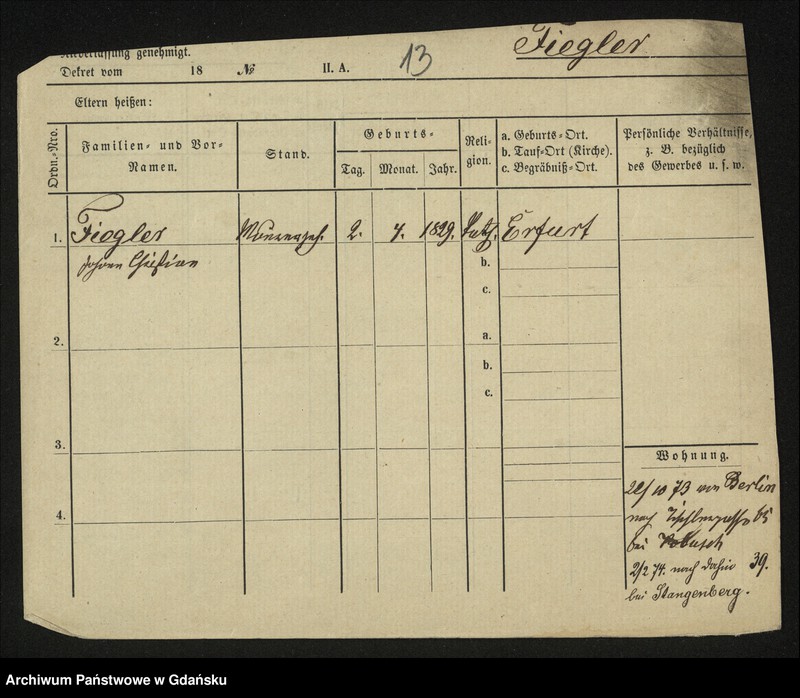 Niederlassung genehmigt.
Dekret vom 18 № II. A. 13
Fiegler
Eltern heißen:
Ordn.-Nro.
Familien- und Vor-
Namen.
Stand.
Geburts-
Tag. Monat. Jahr.
Reli-
gion.
a. Geburts-Ort.
b. Tauf-Ort (Kirche).
c. Begräbniß-Ort.
Persönliche Verhältnisse,
z. B. bezüglich
des Gewerbes u. s. w.
1. Fiegler Maurerges. 2. 4. 1829. Erfurt
Johann Christian
b.
c.
2. a.
b.
c.
3.
4.
Wohnung.
10 73 von Berlin
nach Tischlergasse 65
bei
2/2 74. nach dahin 39.
bei Stangenberg.
Archiwum Państwowe w Gdańsku